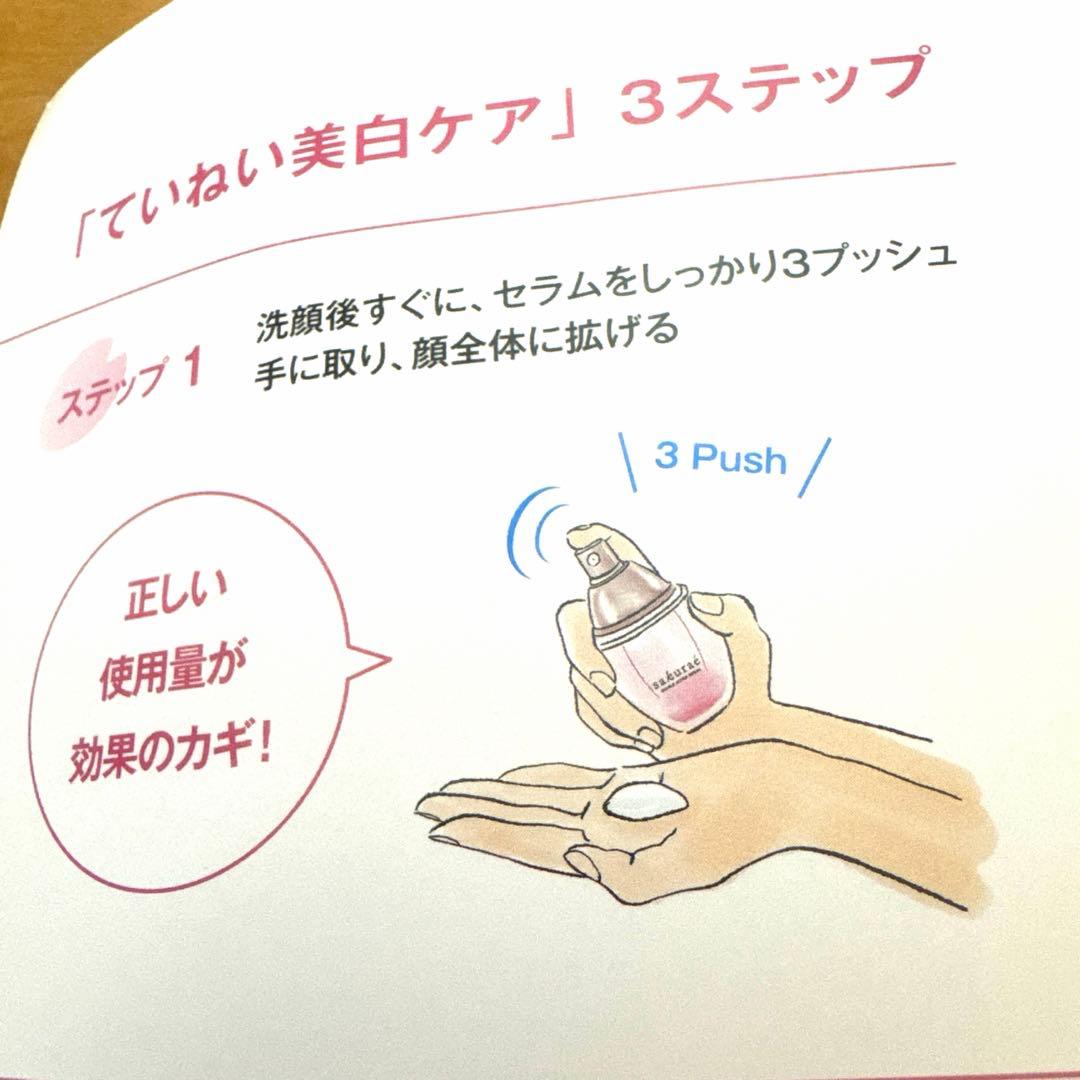 「ていねい美白ケア」3ステップ
ステップ 1
洗顔後すぐに、セラムをしっかり3プッシュ
手に取り、顔全体に拡げる
3 Push
正しい
使用量が
効果のカギ!
sakuraé